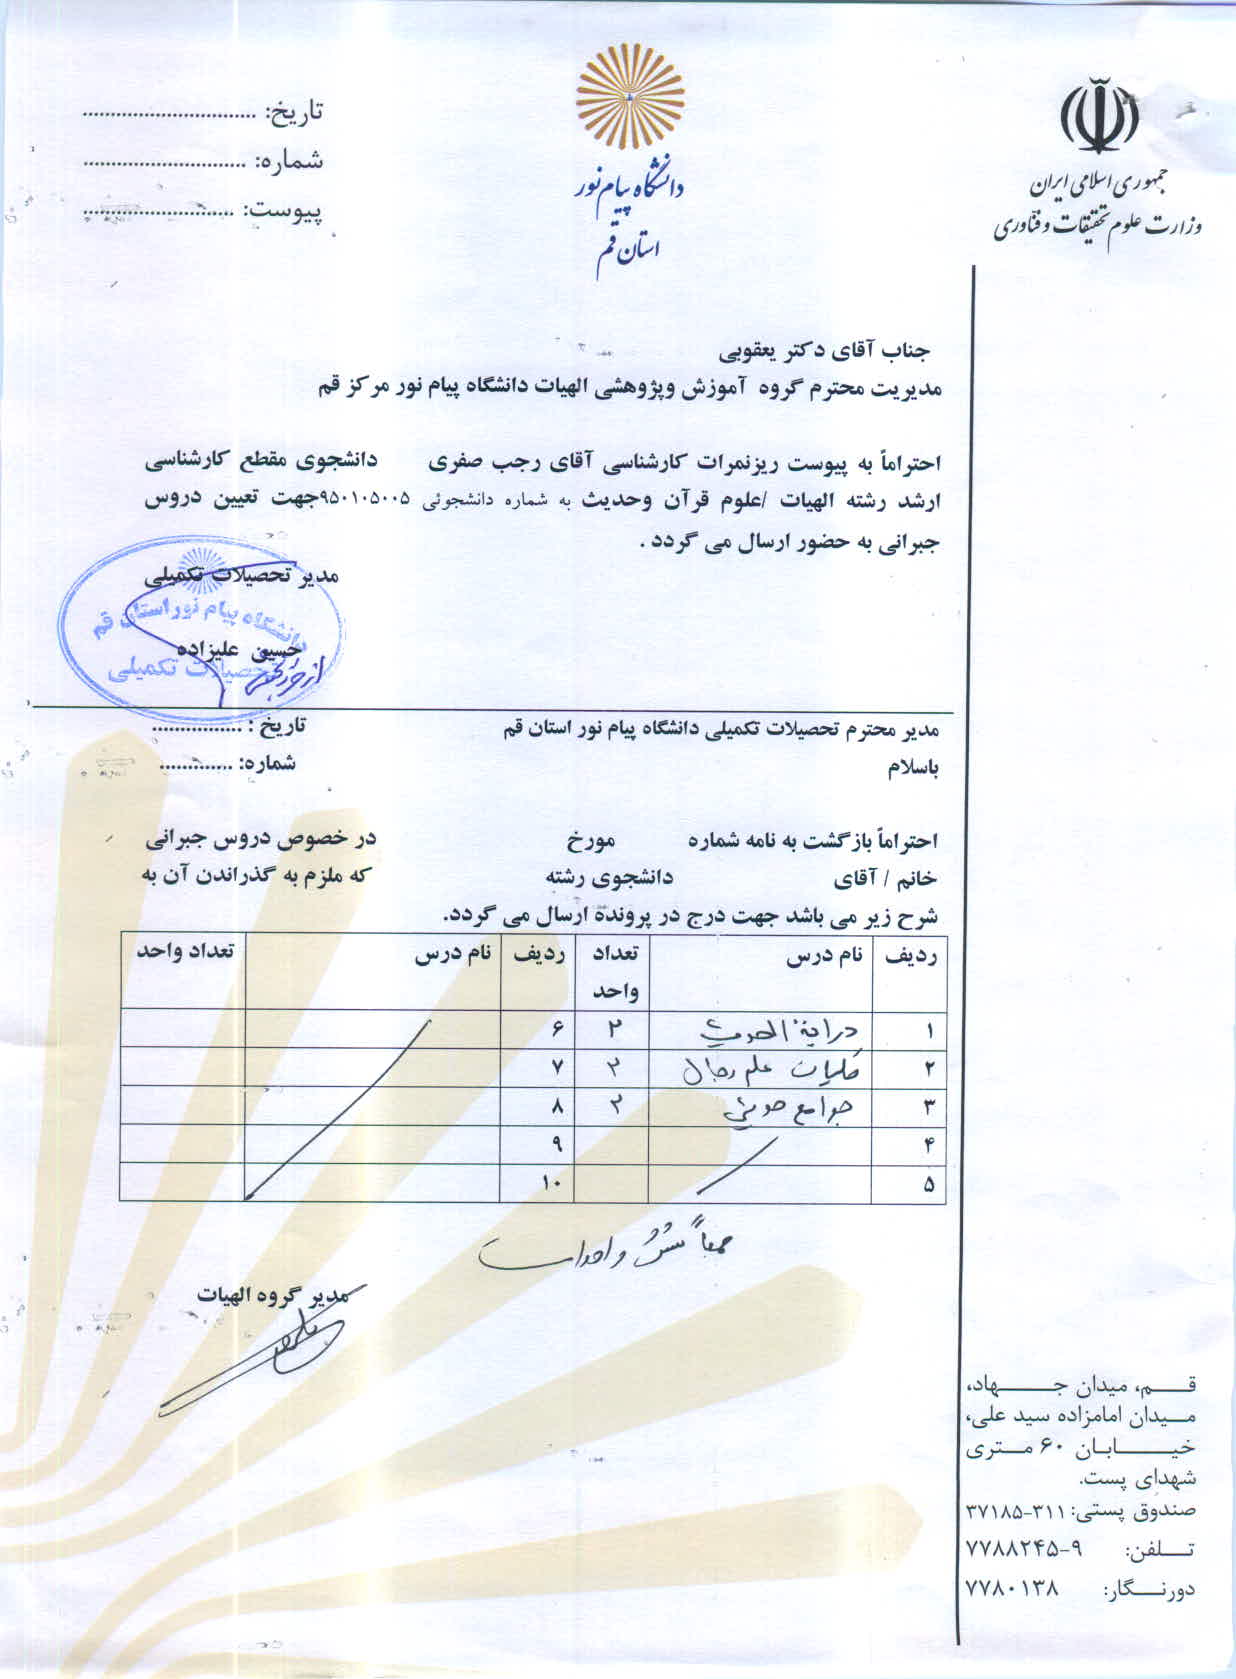 جمهوری اسلامی ایران
وزارت علوم تحقیقات و فناوری
دانشگاه پیام نور
استان قم
تاریخ: ...............................
شماره: .............................
پیوست: ...........................
جناب آقای دکتر یعقوبی
مدیریت محترم گروه آموزش وپژوهشی الهیات دانشگاه پیام نور مرکز قم
احتراماً به پیوست ریزنمرات کارشناسی آقای رجب صفری دانشجوی مقطع کارشناسی
ارشد رشته الهیات /علوم قرآن وحدیث به شماره دانشجوئی ۹۵۰۱۰۵۰۰۵جهت تعیین دروس
جبرانی به حضور ارسال می گردد .
مدیر تحصیلات تکمیلی
حسین علیزاده
دانشگاه پیام نور استان قم
تحصیلات تکمیلی
مدیر محترم تحصیلات تکمیلی دانشگاه پیام نور استان قم
تاریخ : ................
باسلام
شماره: .............
احتراماً بازگشت به نامه شماره مورخ در خصوص دروس جبرانی
خانم / آقای دانشجوی رشته که ملزم به گذراندن آن به
شرح زیر می باشد جهت درج در پرونده ارسال می گردد.
ردیف نام درس تعداد واحد ردیف نام درس تعداد واحد
۱ درایة الحدیث ۲ ۶
۲ کلیات علم رجال ۲ ۷
۳ جوامع حدیثی ۲ ۸
۴ ۹
۵ ۱۰
جمعاً شش واحد است
مدیر گروه الهیات
قم، میدان جهاد،
میدان امامزاده سید علی،
خیابان ۶۰ متری
شهدای پست.
صندوق پستی: ۳۱۱-۳۷۱۸۵
تلفن: ۹-۷۷۸۸۲۴۵
دورنگار: ۷۷۸۰۱۳۸